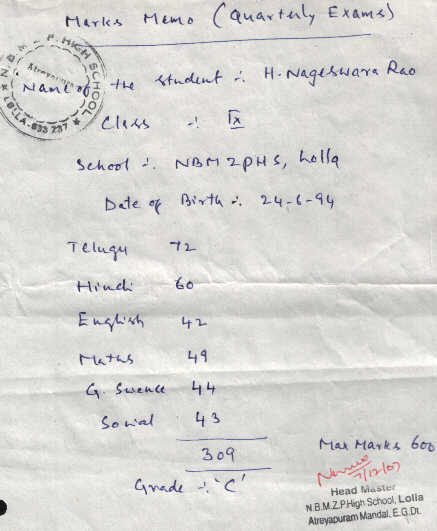 Marks Memo (Quarterly Exams)
N.B.M.Z.P. HIGH SCHOOL
Atreyapuram
LOLLA-533 237
Name of the student :- H. Nageswara Rao
Class :- IX
School :- NBMZPHS, Lolla
Date of Birth :- 24-6-94
Telugu 72
Hindi 60
English 42
Maths 49
G. Science 44
Social 43
309
Max Marks 600
Grade :- 'C'
7/12/07
Head Master
N.B.M.Z.P.High School, Lolla
Atreyapuram Mandal, E.G.Dt.